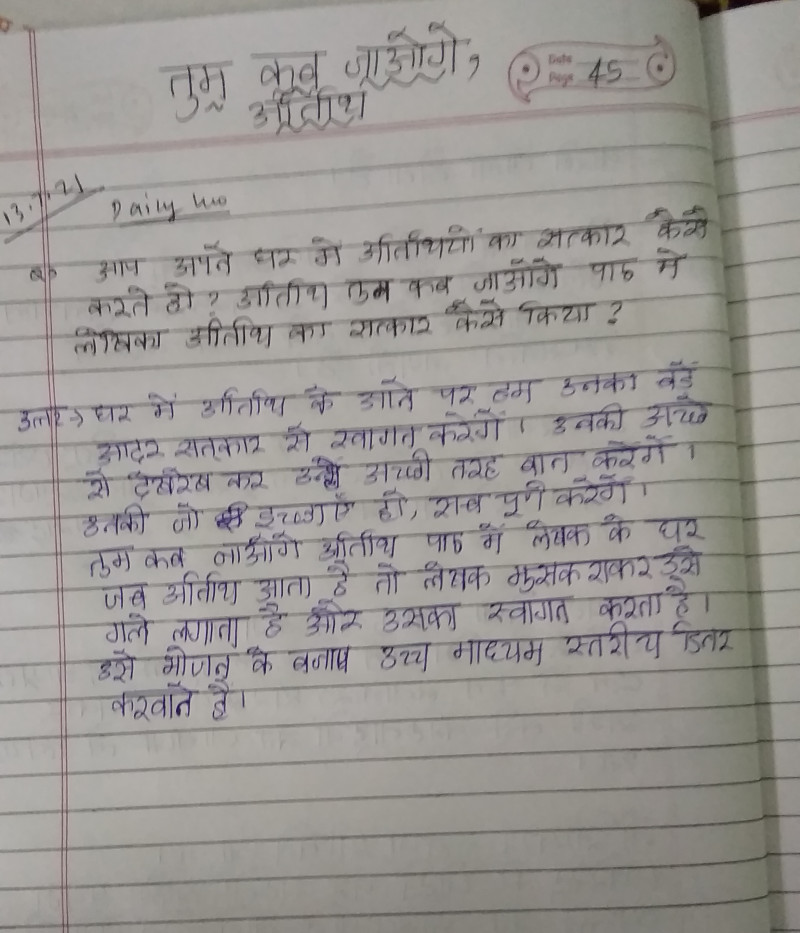 तुम कब जाओगे,
अतिथि
Date
Page 45
13.7.21
Daily
आप अपने घर में अतिथियों का सत्कार कैसे
करते हो? अतिथि तुम कब जाओगे पाठ में
लेखिका अतिथि का सत्कार कैसे किया ?
उत्तर→ घर में अतिथि के आने पर हम उनका बड़े
आदर सत्कार से स्वागत करेगें। उनकी अच्छे
से देखरेख कर उनसे अच्छी तरह बात करेगें।
उनकी जो इच्छाएँ हो, सब पूर्ण करेगें।
तुम कब जाओगे अतिथि पाठ में लेखक के घर
जब अतिथि आता है तो लेखक मुसकराकर उसे
गले लगाता है और उसका स्वागत करता है।
उसे भोजन के बजाए उच्च माध्यम स्तरीय डिनर
करवाते है।